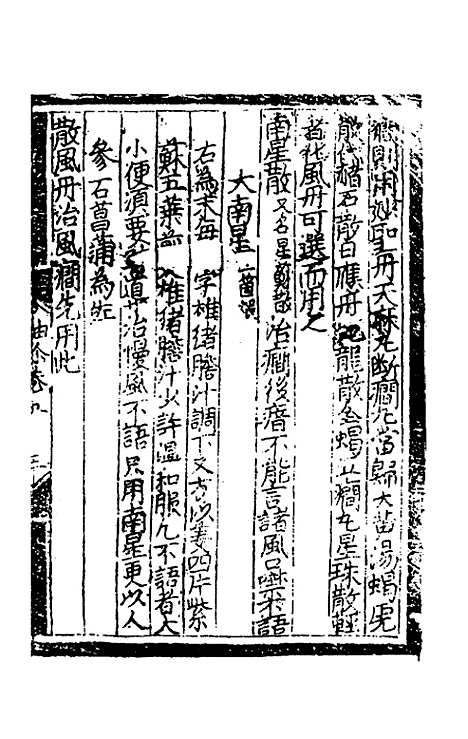 癇則用 聖丹天麻丸斷癇丸當歸大黃湯蝎虎
散 豬石散日應丹 龍散金蝎止癇丸星珠散輕
者化風丹可選而用之
南星散又名星蘇散治癇後瘖不能言諸風口噤不語
大南星一箇
右為末每 字雄猪膽汁調下又方以姜四片紫
蘇五葉 雄猪膽汁少許溫和服凡不語者大
小便須要 治慢風不語只用南星更以人
參石菖蒲為佐
散風丹治風癇先用此